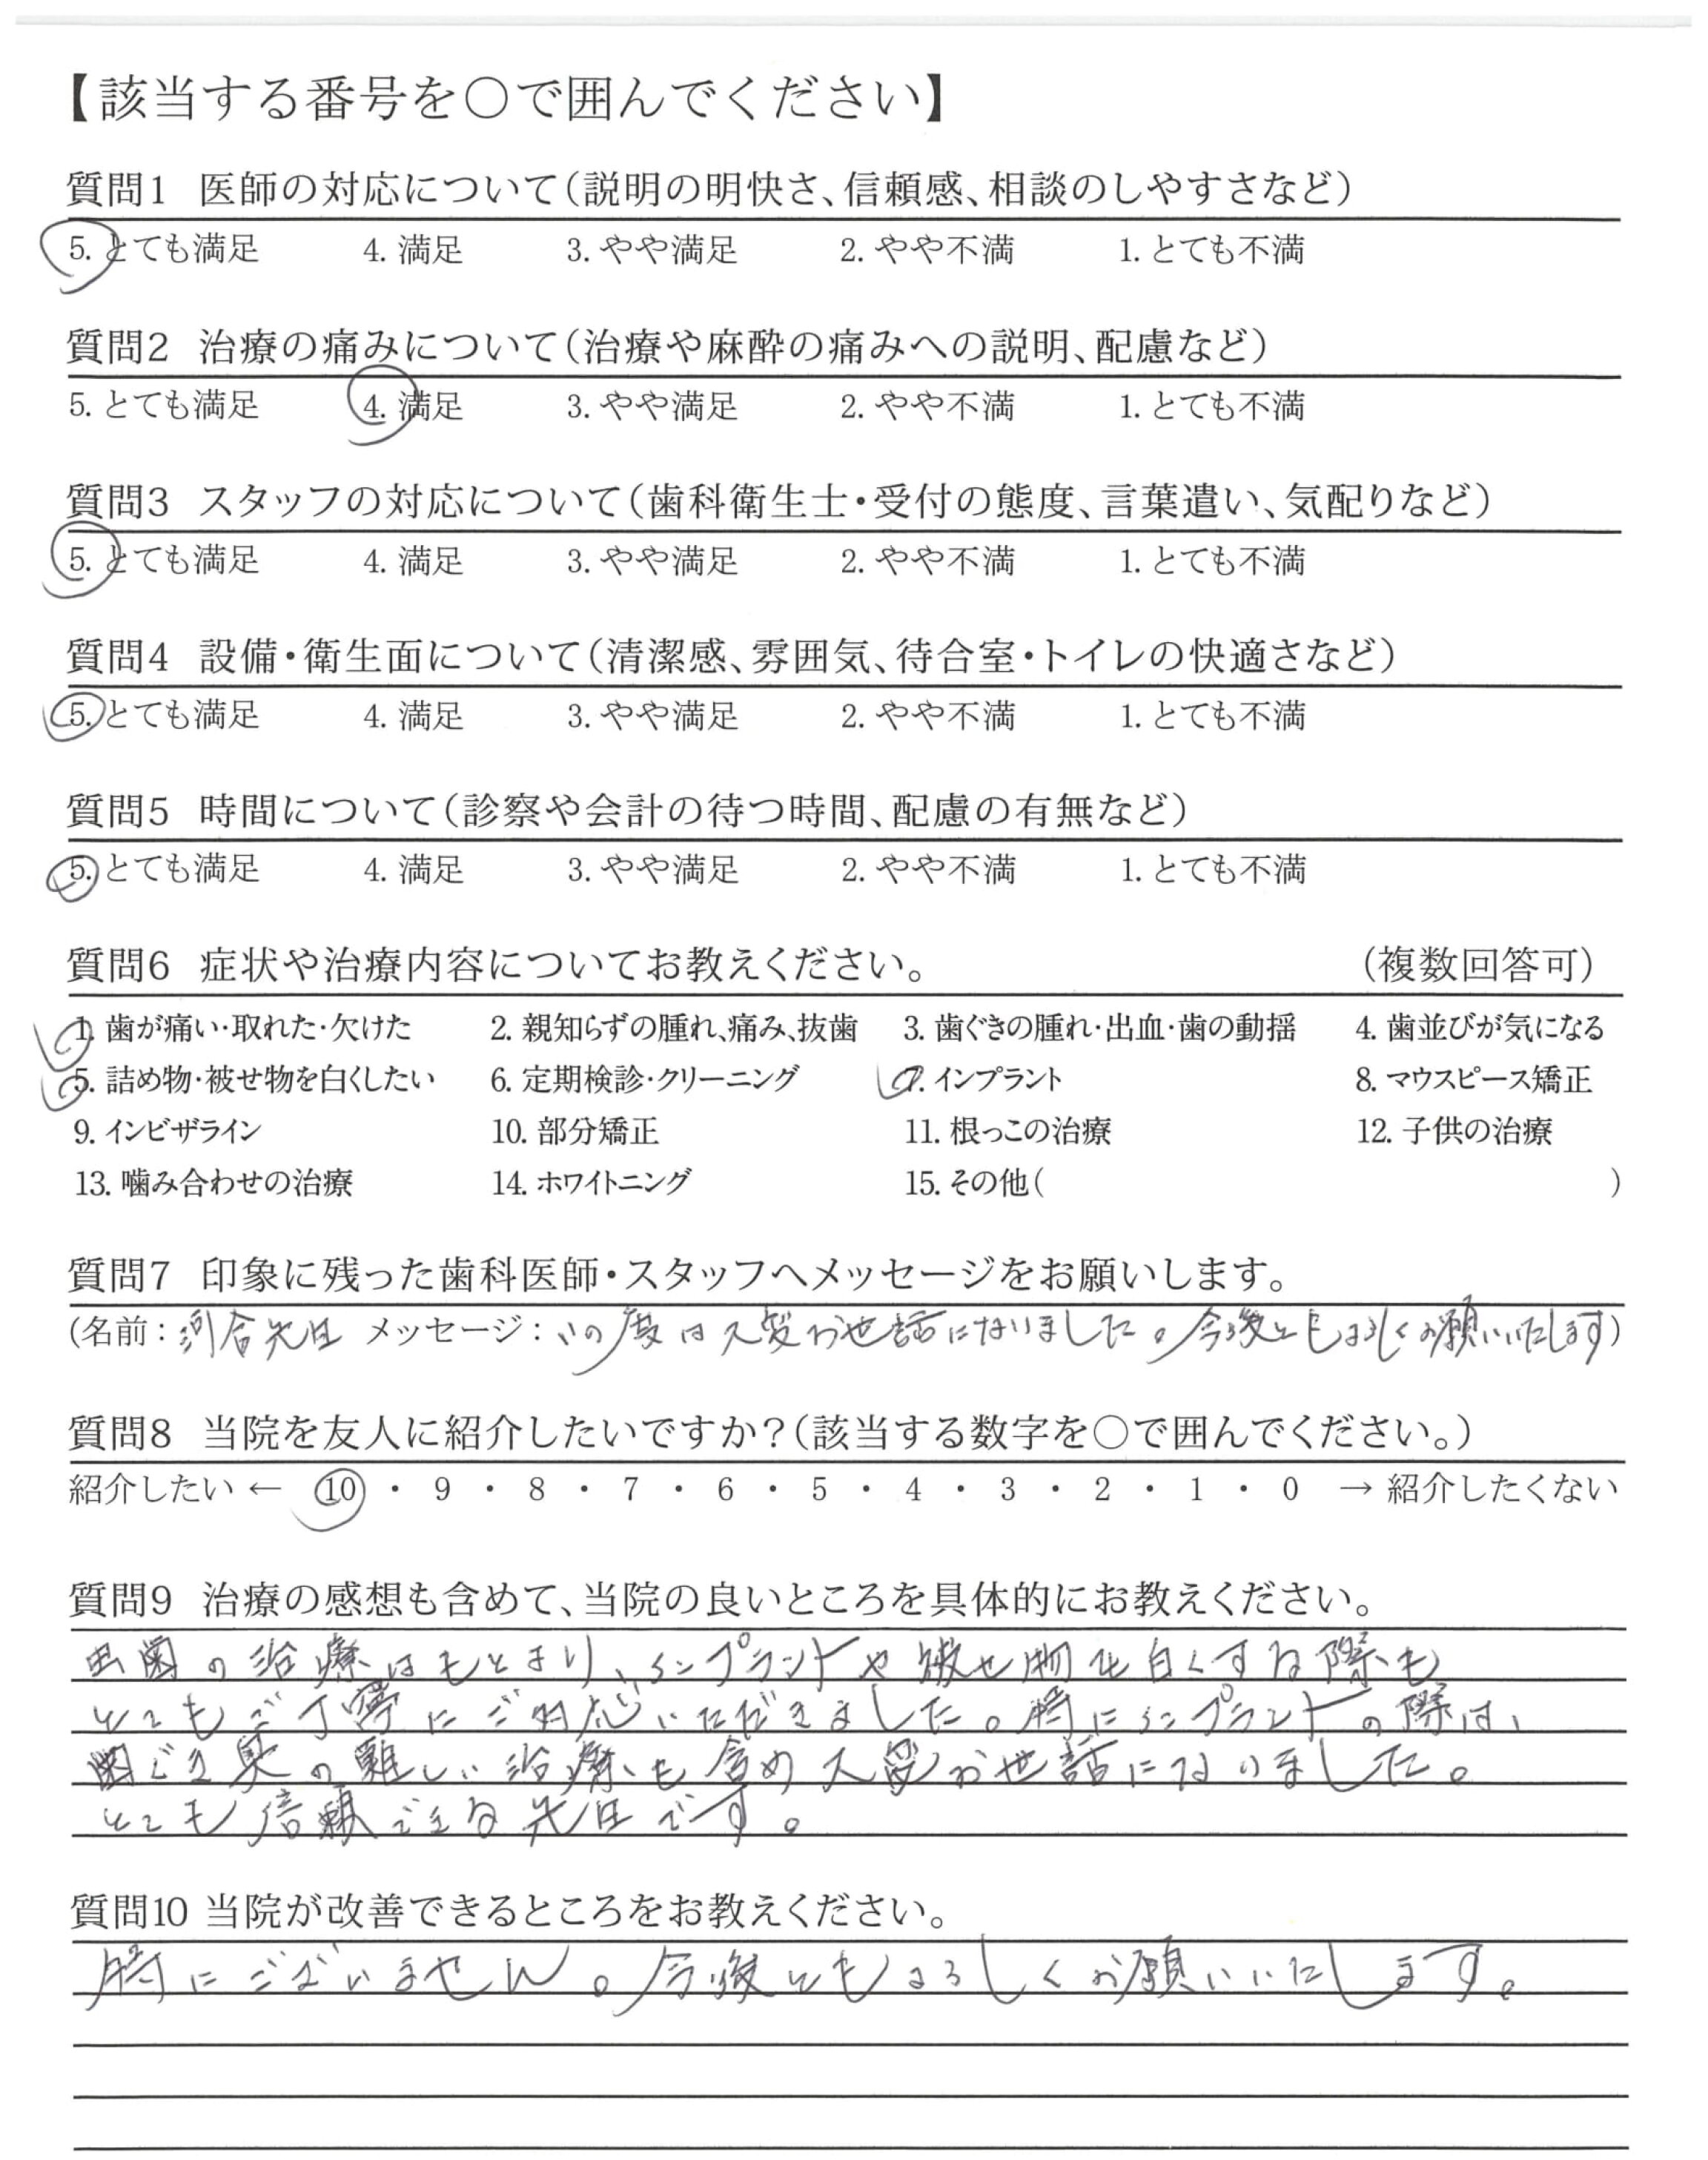 【該当する番号を○で囲んでください】
質問1 医師の対応について（説明の明快さ、信頼感、相談のしやすさなど）
5. とても満足 4. 満足 3. やや満足 2. やや不満 1. とても不満
質問2 治療の痛みについて（治療や麻酔の痛みへの説明、配慮など）
5. とても満足 4. 満足 3. やや満足 2. やや不満 1. とても不満
質問3 スタッフの対応について（歯科衛生士・受付の態度、言葉遣い、気配りなど）
5. とても満足 4. 満足 3. やや満足 2. やや不満 1. とても不満
質問4 設備・衛生面について（清潔感、雰囲気、待合室・トイレの快適さなど）
5. とても満足 4. 満足 3. やや満足 2. やや不満 1. とても不満
質問5 時間について（診察や会計の待つ時間、配慮の有無など）
5. とても満足 4. 満足 3. やや満足 2. やや不満 1. とても不満
質問6 症状や治療内容についてお教えください。 （複数回答可）
1. 歯が痛い・取れた・欠けた 2. 親知らずの腫れ、痛み、抜歯 3. 歯ぐきの腫れ・出血・歯の動揺 4. 歯並びが気になる
5. 詰め物・被せ物を白くしたい 6. 定期検診・クリーニング 7. インプラント 8. マウスピース矯正
9. インビザライン 10. 部分矯正 11. 根っこの治療 12. 子供の治療
13. 噛み合わせの治療 14. ホワイトニング 15. その他（ ）
質問7 印象に残った歯科医師・スタッフへメッセージをお願いします。
（名前：河合先生 メッセージ：いの度は大変お世話になりました。今後ともよろしくお願いいたします）
質問8 当院を友人に紹介したいですか？（該当する数字を○で囲んでください。）
紹介したい ← 10 ・ 9 ・ 8 ・ 7 ・ 6 ・ 5 ・ 4 ・ 3 ・ 2 ・ 1 ・ 0 → 紹介したくない
質問9 治療の感想も含めて、当院の良いところを具体的にお教えください。
虫歯の治療はもとより、インプラントや被せ物を白くする際も
とてもご丁寧にご対応いただきました。特にインプラントの際は、
歯ぐき臭の難しい治療も含め大変お世話になりました。
とても信頼できる先生です。
質問10 当院が改善できるところをお教えください。
特にございません。今後ともよろしくお願いいたします。